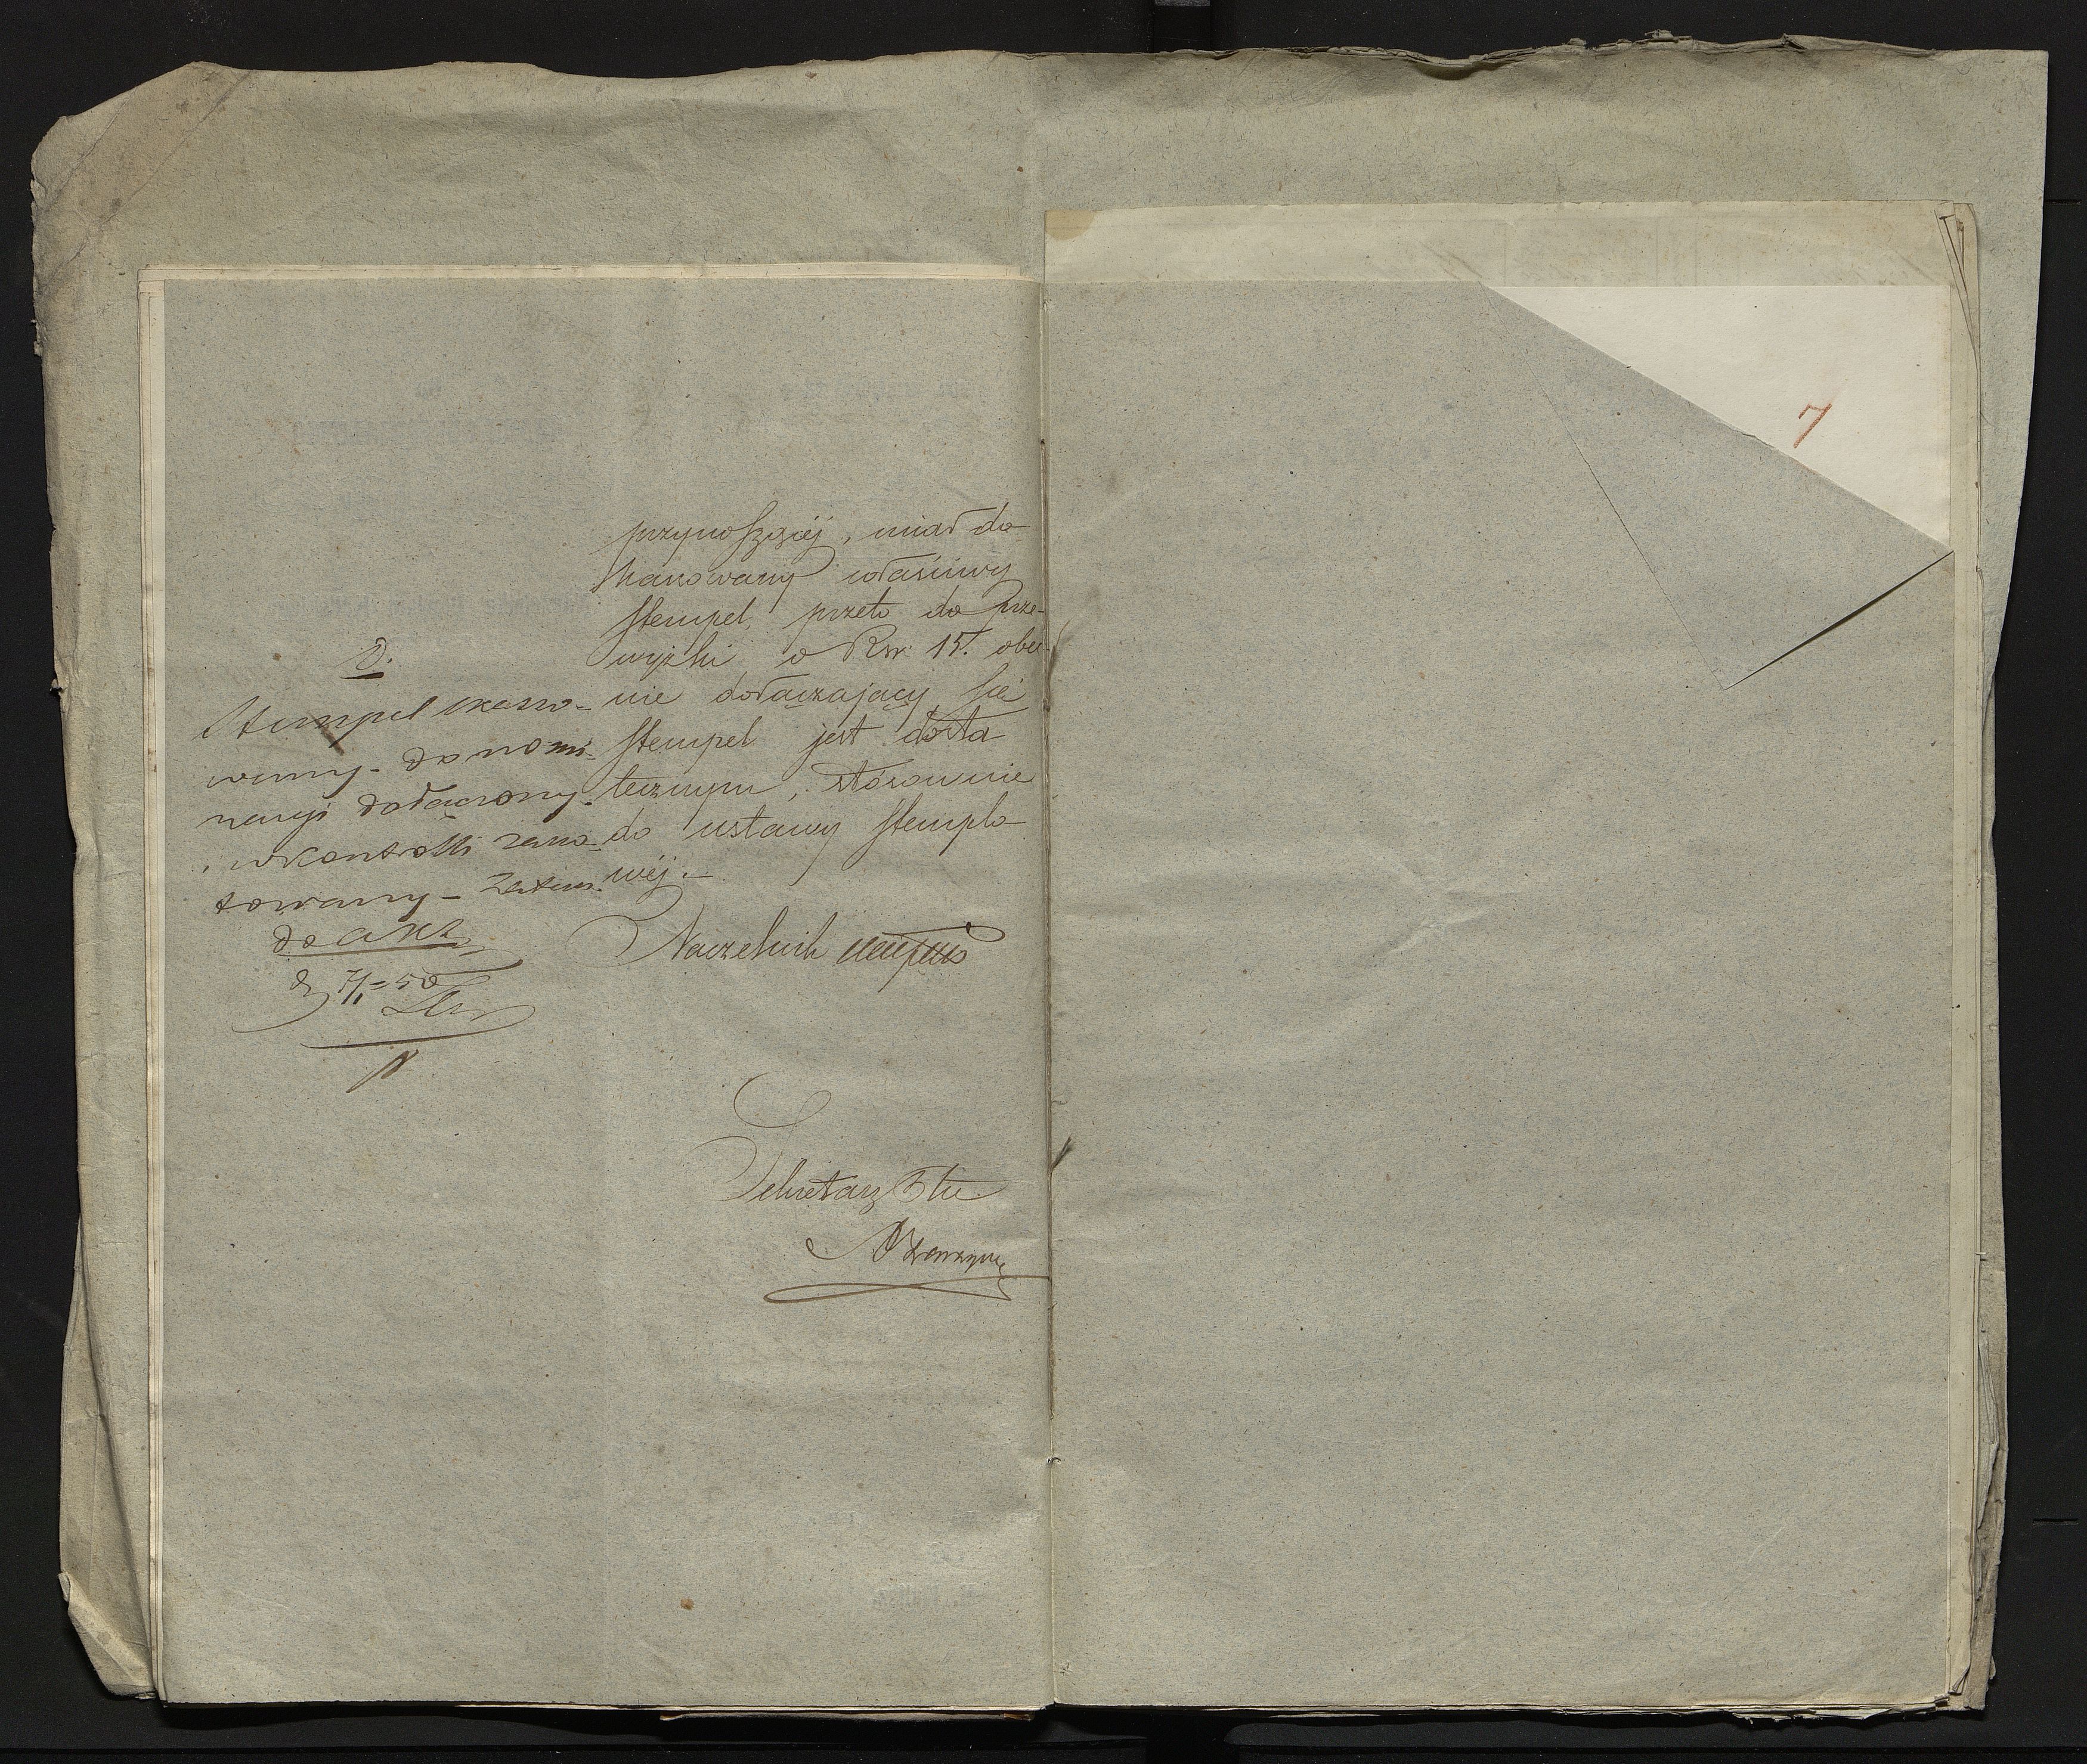 przynoszącej, miał do
kassowany właściwy
stempel, przeto do prze-
wyżki o Rsr. 15. obec-
nie dołączający się
stempel jest dosta
tecznym, stósownie
do ustawy stemplo
wéj.—
Naczelnik
Sekretarz
D.
Stempel skasso-
wany - do nomi-
nacyi dołączony.
i w kontrolli zano-
towany - zatem
do akt
d 7/1 - 50
7